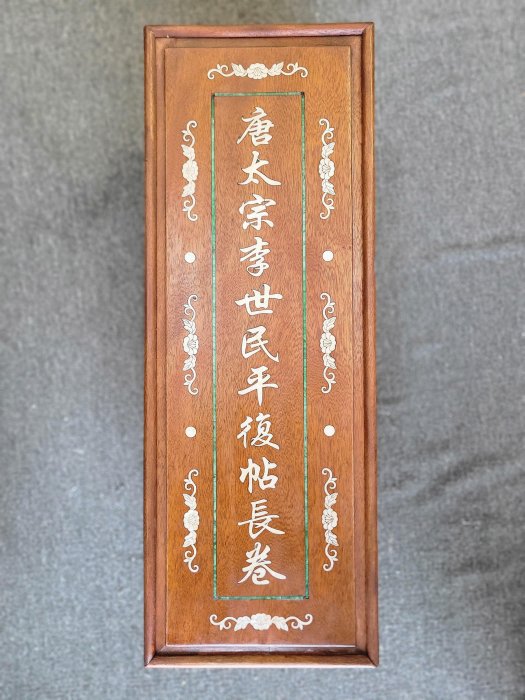 唐太宗李世民平復帖長卷